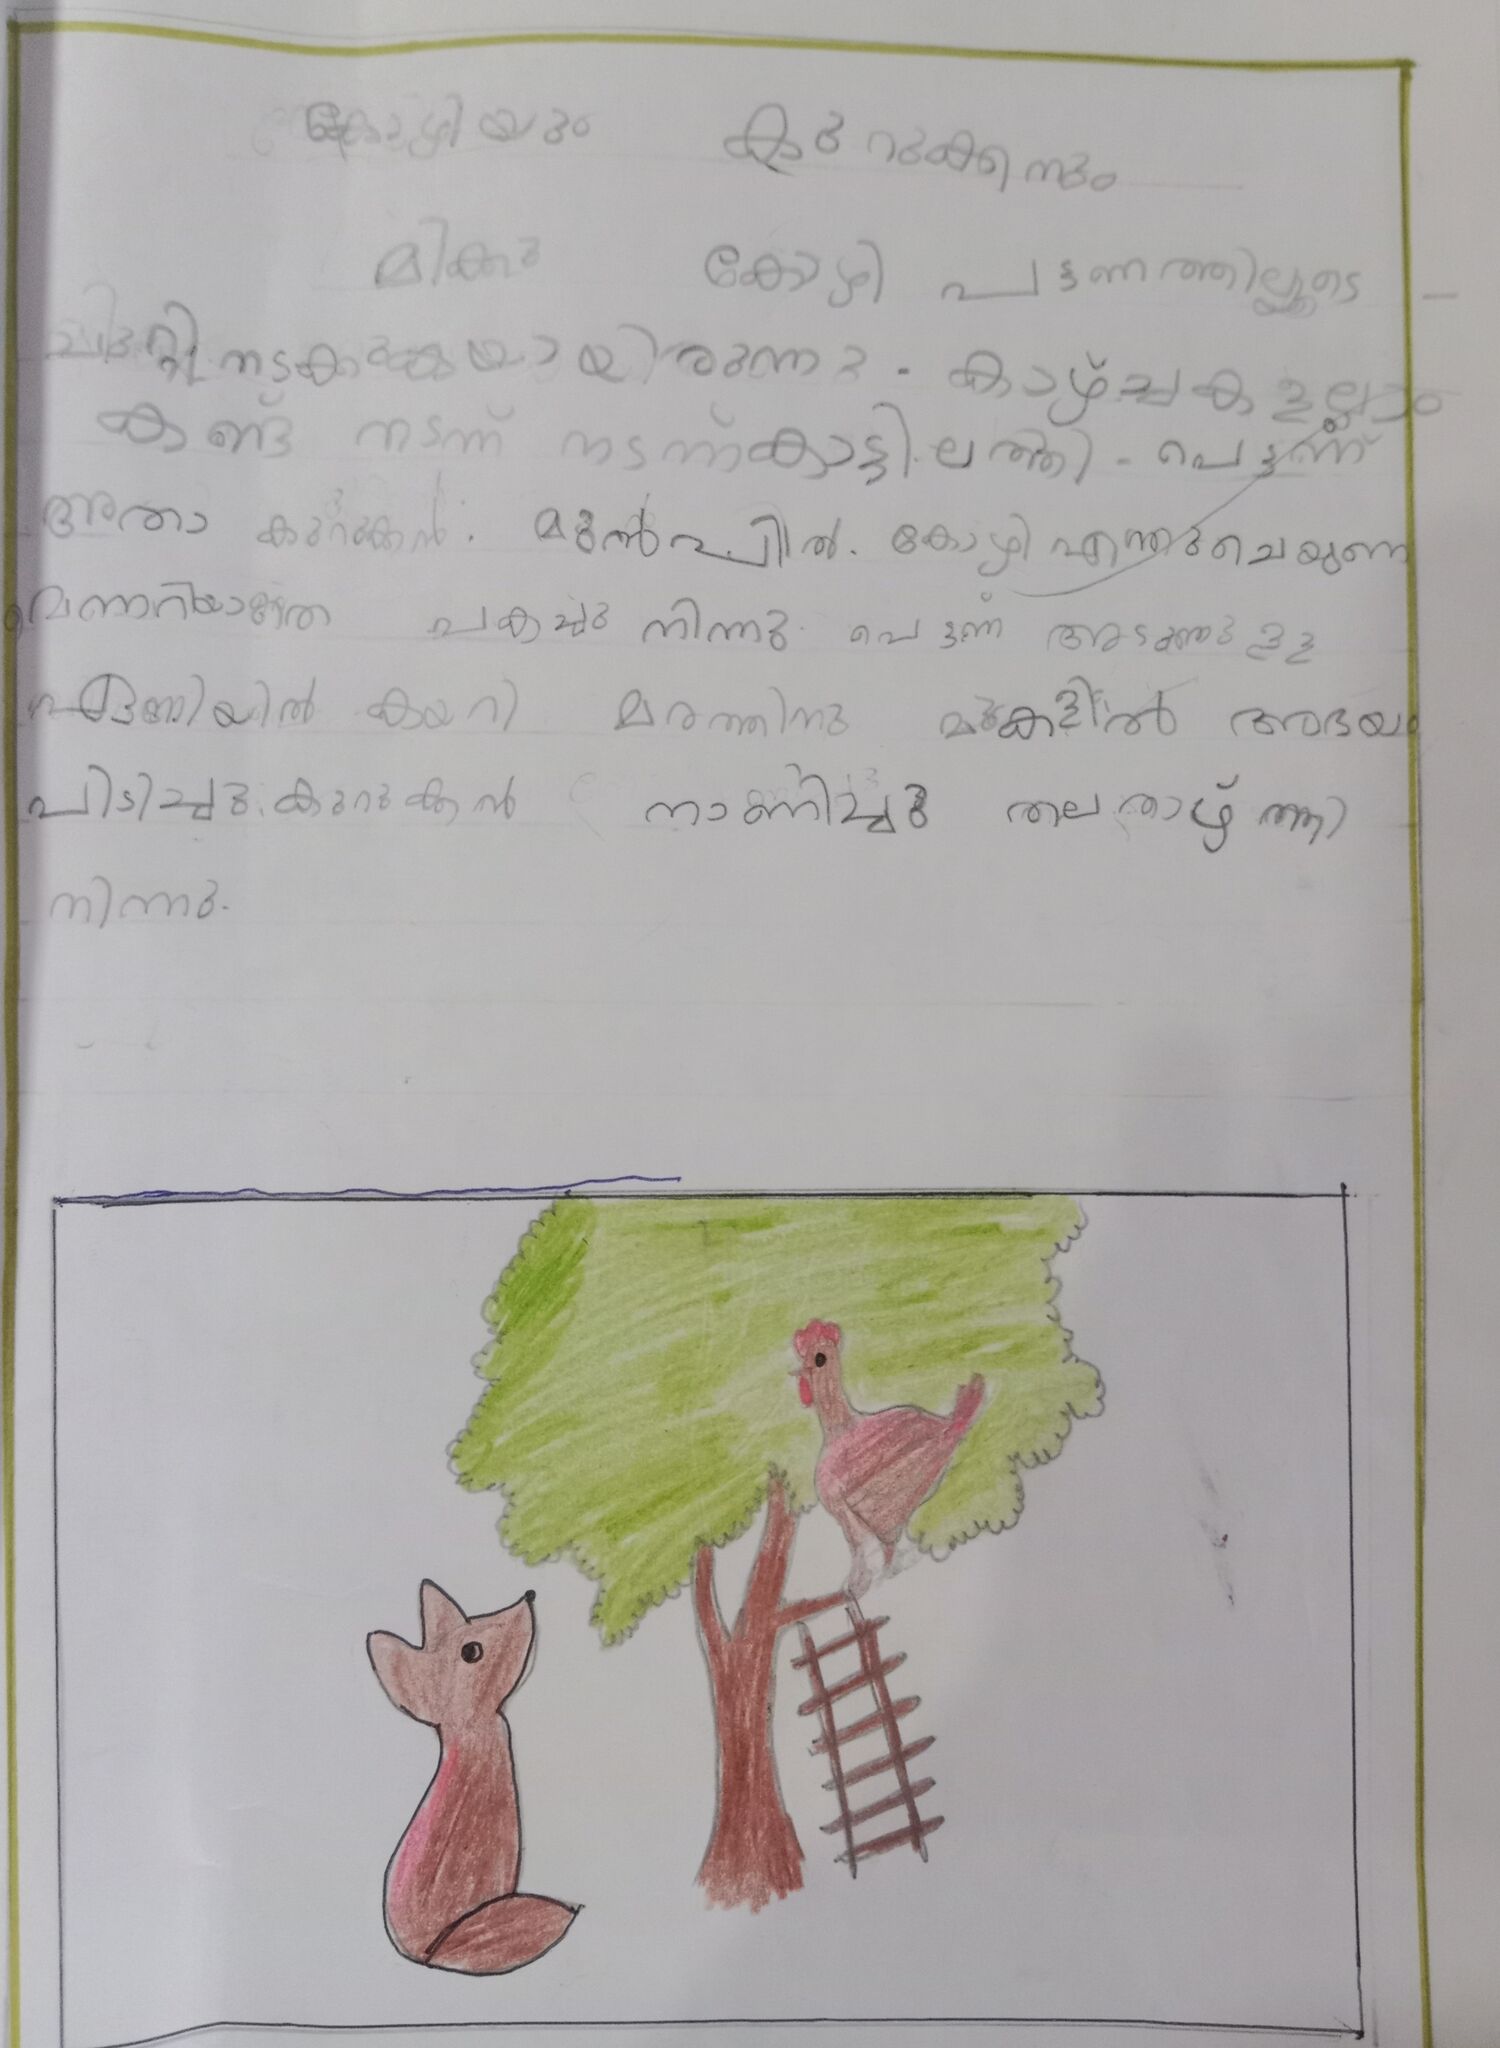 കോഴിയും കുറുക്കനും
മിക്കു കോഴി പട്ടണത്തിലൂടെ
ചുറ്റി നടക്കുകയായിരുന്നു. കാഴ്ച്ചകളെല്ലാം
കണ്ട് നടന്ന് നടന്ന് കാട്ടിലെത്തി. പെട്ടന്ന്
അതാ കുറുക്കൻ. മുൻപിൽ. കോഴി എന്തുചെയുണ
മെന്നറിയാതെ പകച്ചു നിന്നു. പെട്ടന്ന് അടുത്തുള്ള
ഏണിയിൽ കയറി മരത്തിനു മുകളിൽ അഭയം
പിടിച്ചു. കുറുക്കൻ നാണിച്ചു തല താഴ്ത്തി
നിന്നു.